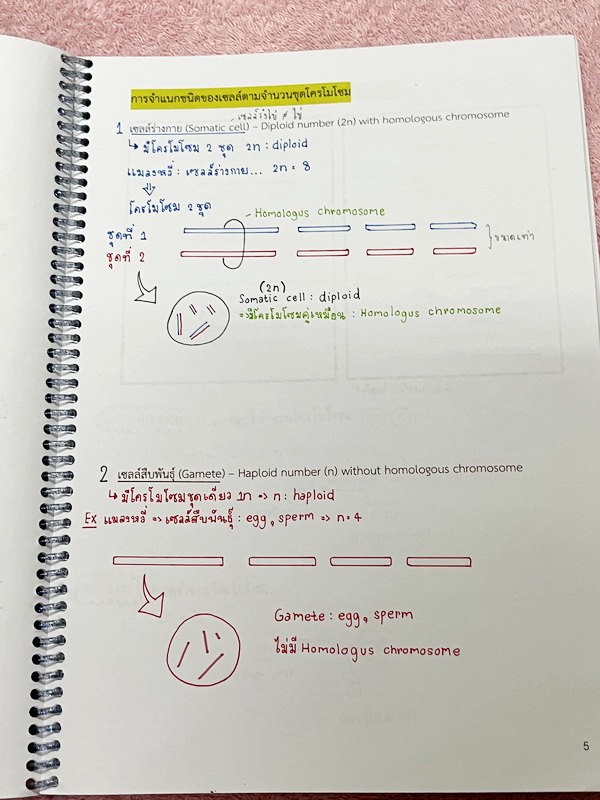 การจำแนกชนิดของเซลล์ตามจำนวนชุดโครโมโซม
1 เซลล์ร่างกาย (Somatic cell) – Diploid number (2n) with homologous chromosome
↳ มีโครโมโซม 2 ชุด 2n : diploid
แมลงหวี่ : เซลล์ร่างกาย... 2n = 8
โครโมโซม 2 ชุด
Homologus chromosome
ชุดที่ 1
ชุดที่ 2
ขนาดเท่า
(2n)
Somatic cell : diploid
=> มีโครโมโซมคู่เหมือน : Homologus chromosome
2 เซลล์สืบพันธุ์ (Gamete) – Haploid number (n) without homologous chromosome
↳ มีโครโมโซมชุดเดียว 1n => n : haploid
Ex แมลงหวี่ => เซลล์สืบพันธุ์ : egg, sperm => n = 4
Gamete : egg, sperm
ไม่มี Homologus chromosome
5